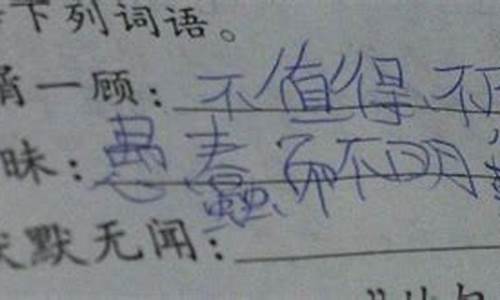 下列词语。
一顾：不值得不
昧：愚蠢而不明
默无闻：